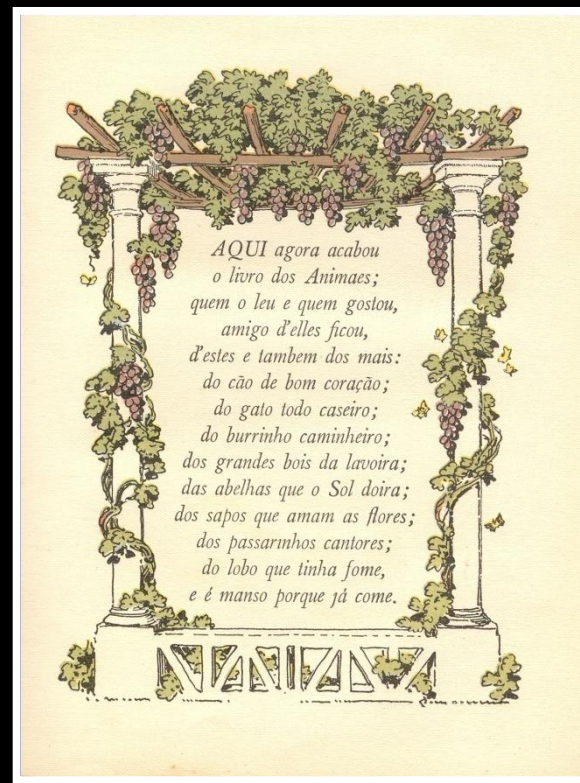 AQUI agora acabou
o livro dos Animaes;
quem o leu e quem gostou,
amigo d'elles ficou,
d'estes e tambem dos mais:
do cão de bom coração;
do gato todo caseiro;
do burrinho caminheiro;
dos grandes bois da lavoira;
das abelhas que o Sol doira;
dos sapos que amam as flores;
dos passarinhos cantores;
do lobo que tinha fome,
e é manso porque já come.